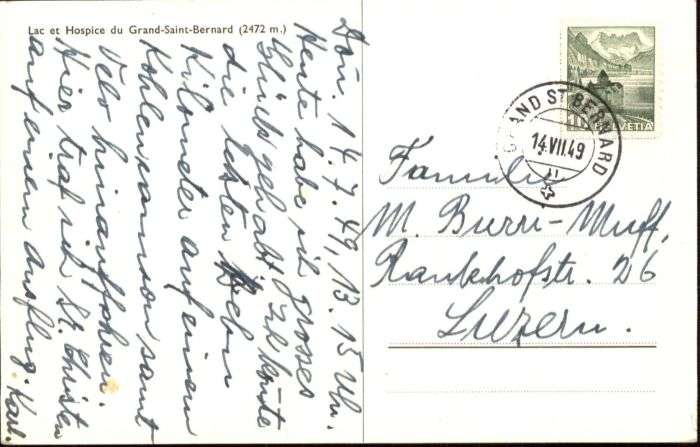 Lac et Hospice du Grand-Saint-Bernard (2472 m.)
Don. 14.7.49, 13.15 Uhr.
Heute habe ich grosses
Glück gehabt. Ich konnte
die letzten sieben
Kilometer auf einem
Kohlencamion samt
Velo hinauffahren.
Hier traf ich St. Christen
auf einem Ausflug. Karl.
GRAND ST BERNARD
14.VII.49
HELVETIA
Familie
M. Burri-Muff,
Rankhofstr. 26
Luzern.